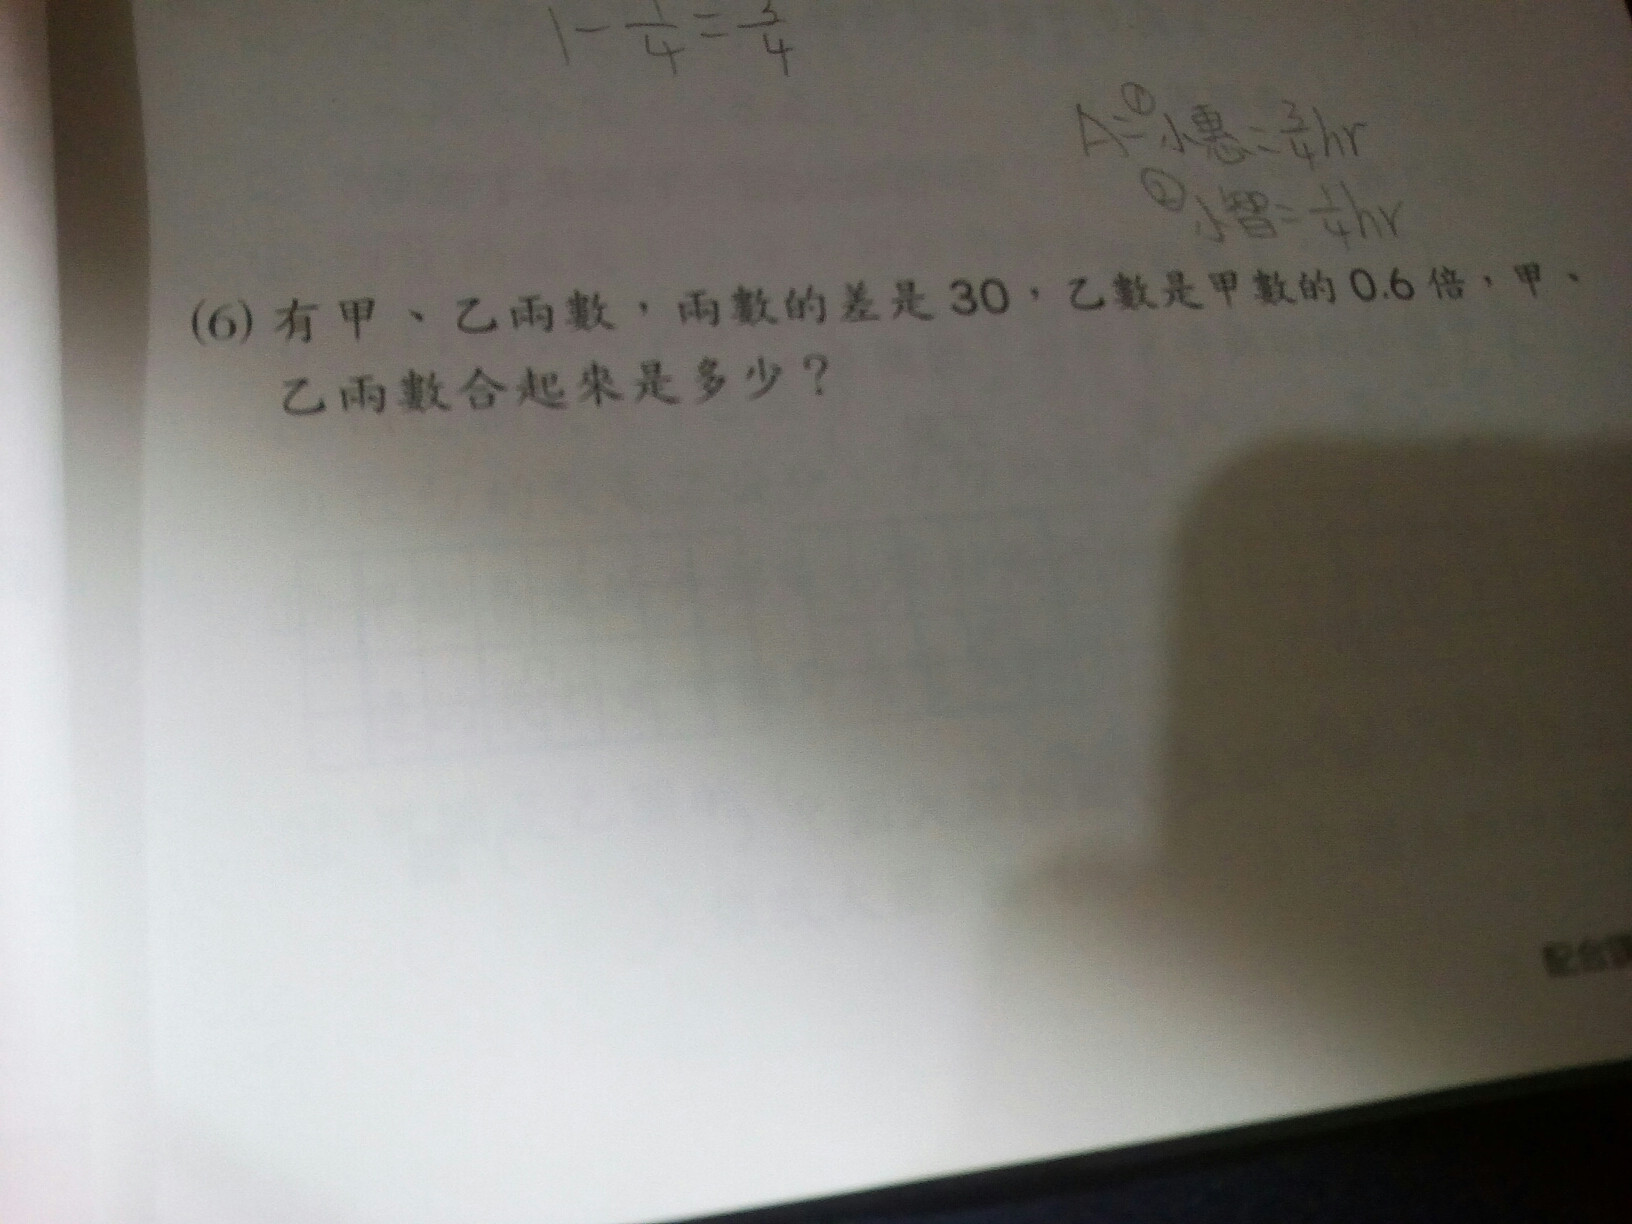 1 - 1/4 = 3/4
A = ① 小惠 = 3/4 hr
② 小智 = 1/4 hr
(6) 有甲、乙兩數，兩數的差是30，乙數是甲數的0.6倍，甲、
乙兩數合起來是多少？
配合課